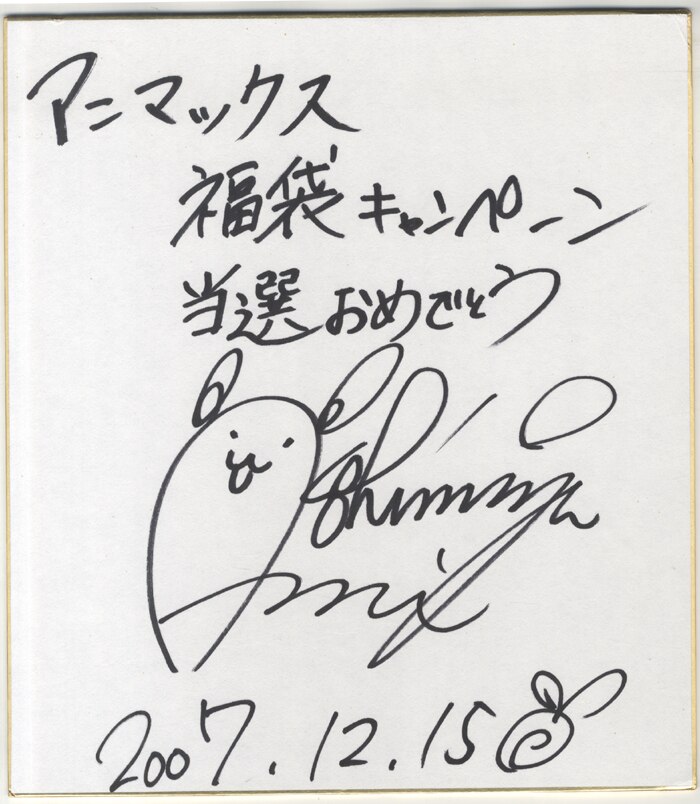 アニマックス
福袋キャンペーン
当選おめでとう
2007.12.15